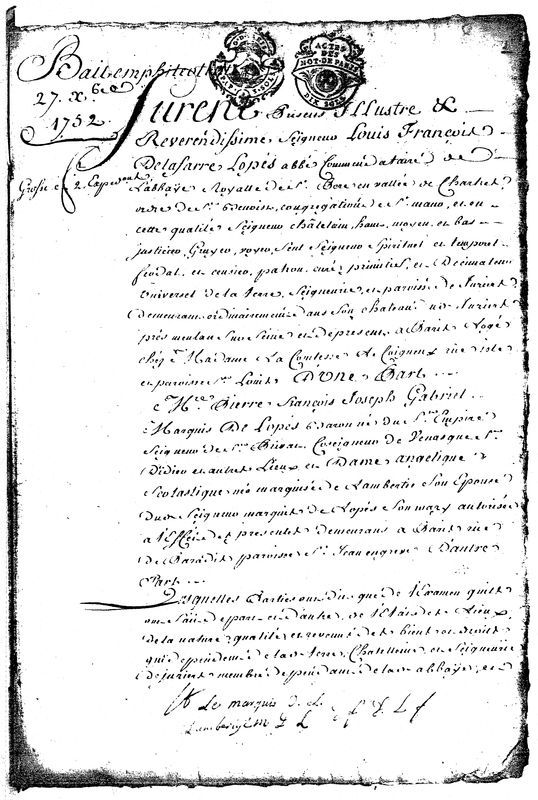 Bail emphiteotique
27. Xbre
1752.
ACTES
DES
NOT. DE PARIS
SIX SOLS
Furent Présens Illustre &
Reverendissime Seigneur Louis François
Delafarre Lopès abbé Commendataire de
L'abbaye Royalle de St. Pere en vallée de Chartres
ordre de St. Benoist, congregation de St. Maur, et en
cette qualité Seigneur châtelain, haut, moyen, et bas
justicier, Gruyer, voyer, seul Seigneur Spirituel et temporel
feodal, et censier, patron, curé primitif, et Decimateur
universel de la terre, Seigneurie, et paroisse de Juziers
demeurant ordinairement dans son chateau de Juziers
près meulan sur Seine et de present a Paris Logé
chez Madame La Comtesse de Coigneux rue
et paroisse St. Louis D'une Part
Et Mre. Pierre François Joseph Gabriel
Marquis De Lopès Baron né du St. Empire
Seigneur de Coseigneur de Venasque St.
Didier et autres Lieux et Dame angelique
Scolastique née marquise de Lambertie son Epouse
dud. Seigneur marquis de Lopès son mary autorisée
a l'Effet des presentes demeurans a Paris rue
de Paradis paroisse St. Jean en greve D'autre
Part
Lesquelles Parties ont dit que de l'Examen qu'ils
ont fait de part et d'autre, de l'Etat des Lieux,
de la nature, qualité et revenu des biens et droits
qui dependent de la terre, Chatellenie et Seigneurie
de juziers membre dependant de la abbaye, et
Le marquis D. L.
Lambertye M. D L